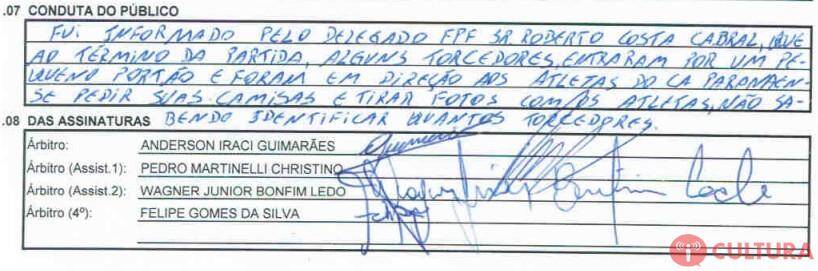 .07 CONDUTA DO PÚBLICO
FUI INFORMADO PELO DELEGADO FPF SR. ROBERTO COSTA CABRAL, QUE
AO TÉRMINO DA PARTIDA, ALGUNS TORCEDORES, ENTRARAM POR UM PE-
QUENO PORTÃO E FORAM EM DIREÇÃO AOS ATLETAS DO CA PARANAEN-
SE PEDIR SUAS CAMISAS E TIRAR FOTOS COM OS ATLETAS, NÃO SA-
.08 DAS ASSINATURAS BENDO IDENTIFICAR QUANTOS TORCEDORES.
Árbitro: ANDERSON IRACI GUIMARÃES
Árbitro (Assist.1): PEDRO MARTINELLI CHRISTINO
Árbitro (Assist.2): WAGNER JUNIOR BONFIM LEDO
Árbitro (4º): FELIPE GOMES DA SILVA
CULTURA